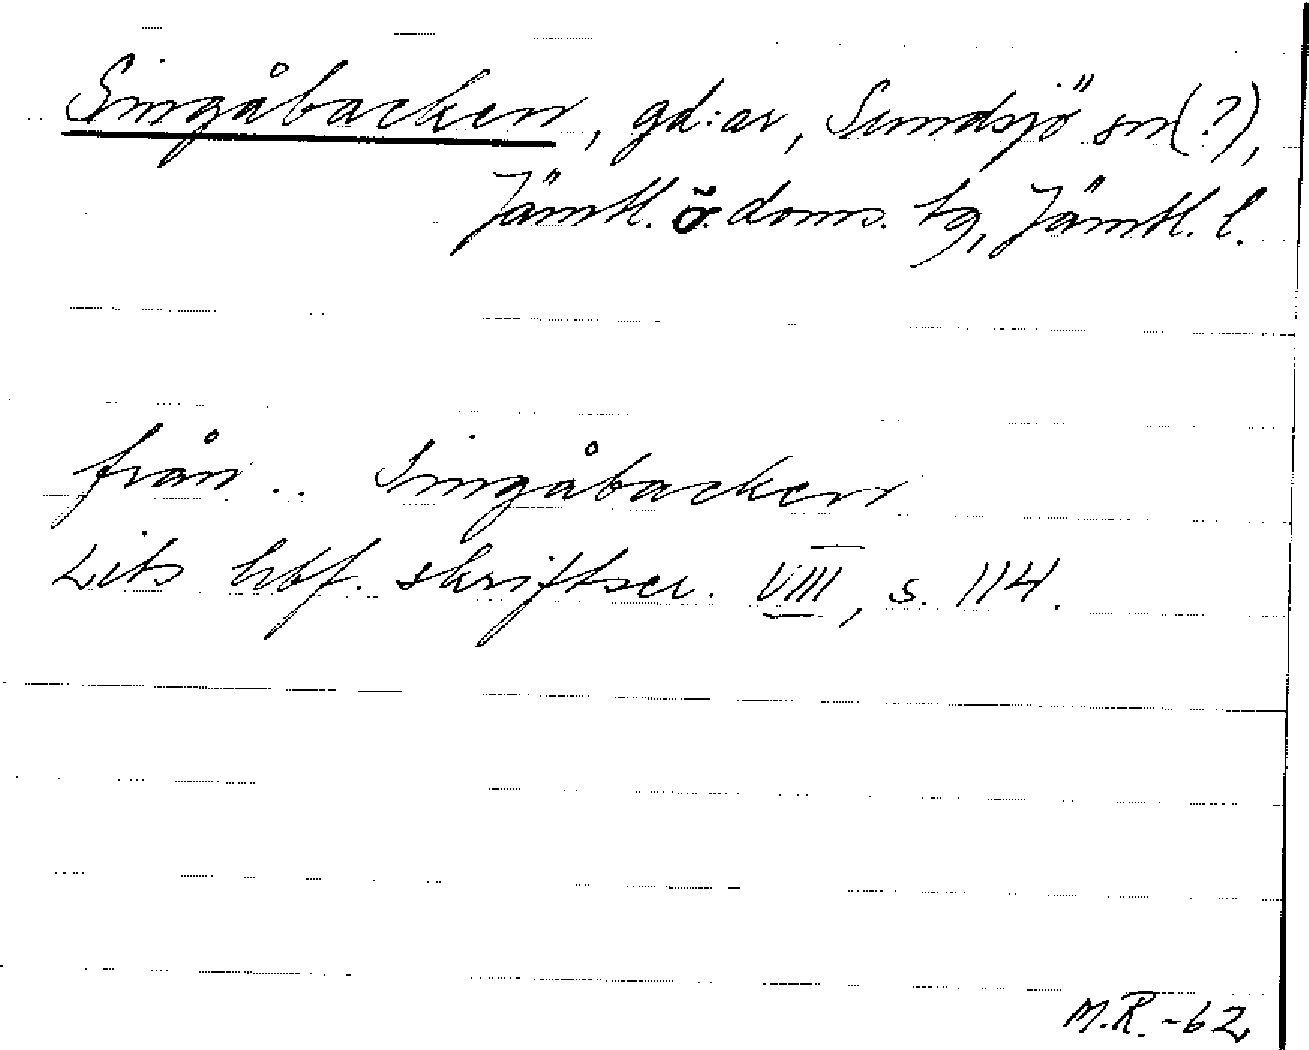 Singåbacken, gd:ar, Sundsjö sn(?),
Jämtl. ö. doms. tg, Jämtl. l.
från .. Singåbacken
Lits hbf. skriftser. VIII, s. 114.
M.R. -62